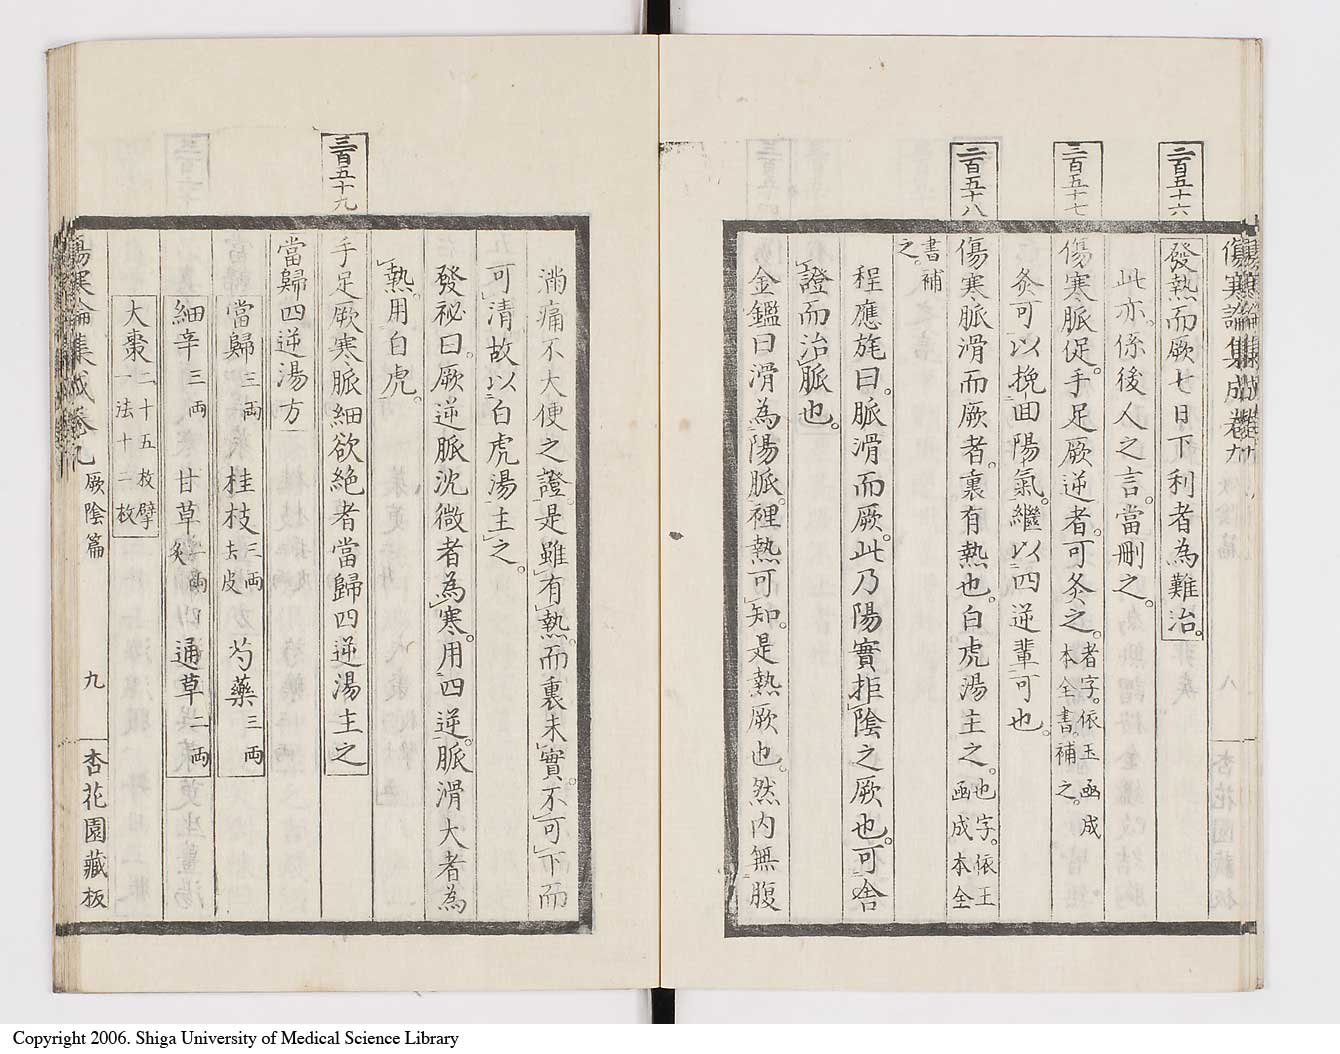 傷寒論集成卷九
八
杏花園藏板
三百五十六
發熱而厥七日下利者為難治。
此亦。係後人之言。當刪之。
三百五十七
傷寒脈促。手足厥逆者。可灸之。者字。依玉函成本全書。補之。
灸可以挽回陽氣。繼以四逆輩可也。
三百五十八
傷寒脈滑而厥者。裏有熱也。白虎湯主之。也字。依玉函成本全
書補之。
程應旄曰。脈滑而厥。此乃陽實拒陰之厥也。可舍
證而治脈也。
金鑑曰滑為陽脈。裡熱可知。是熱厥也。然内無腹
滿痛不大便之證。是雖有熱。而裏未實。不可下而
可清故以白虎湯主之。
發祕曰。厥逆脈沈微者為寒。用四逆。脈滑大者為
熱。用白虎。
三百五十九
手足厥寒脈細欲絶者當歸四逆湯主之
當歸四逆湯方
當歸三両 桂枝三両去皮 芍藥三両
細辛三両 甘草二両炙 通草二両
大棗二十五枚擘一法十二枚
傷寒論集成卷九
厥陰篇
九
杏花園藏板
Copyright 2006. Shiga University of Medical Science Library